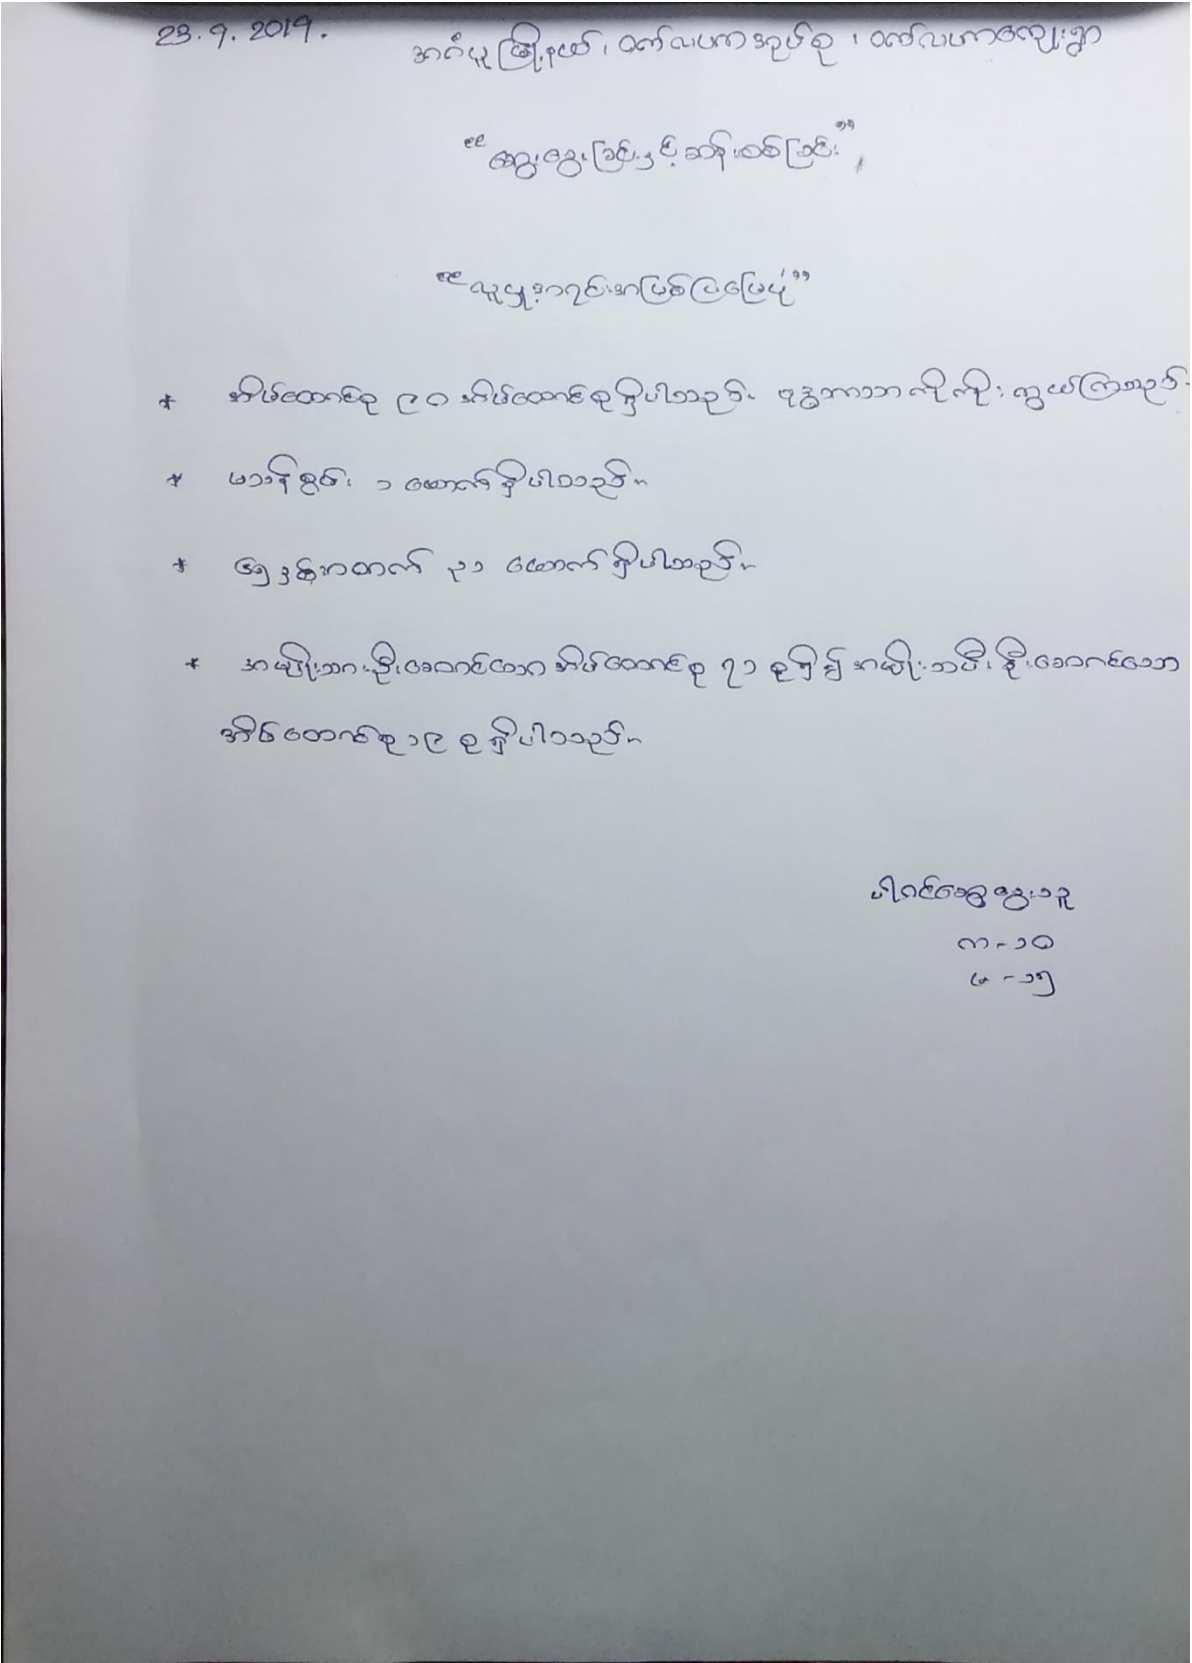 23.9.2019.
အင်္ဂပူမြို့နယ်၊ ဝက်လဟာအုပ်စု ၊ ဝက်လဟာကျေးရွာ
“ဆွေးနွေးခြင်းနှင့်ဆန်းစစ်ခြင်း”
“လူမှုအရင်းအမြစ်ပြမြေပုံ”
* အိမ်ထောင်စု ၉၀ အိမ်ထောင်စုရှိပါသည်။ ဗုဒ္ဓဘာသာ ကိုးကွယ်ကြသည်။
* မသန်စွမ်း ၁ ယောက်ရှိပါသည်။
* ၅နှစ်အထက် ၃၁ ယောက်ရှိပါသည်။
* အမျိုးသားဦးဆောင်သော အိမ်ထောင်စု ၇၁ စုရှိ၍ အမျိုးသမီးဦးဆောင်သော
အိမ်ထောင်စု ၁၉ စုရှိပါသည်။
ပါဝင်ဆွေးနွေးသူ
ကျား - ၁၀
မ - ၁၅